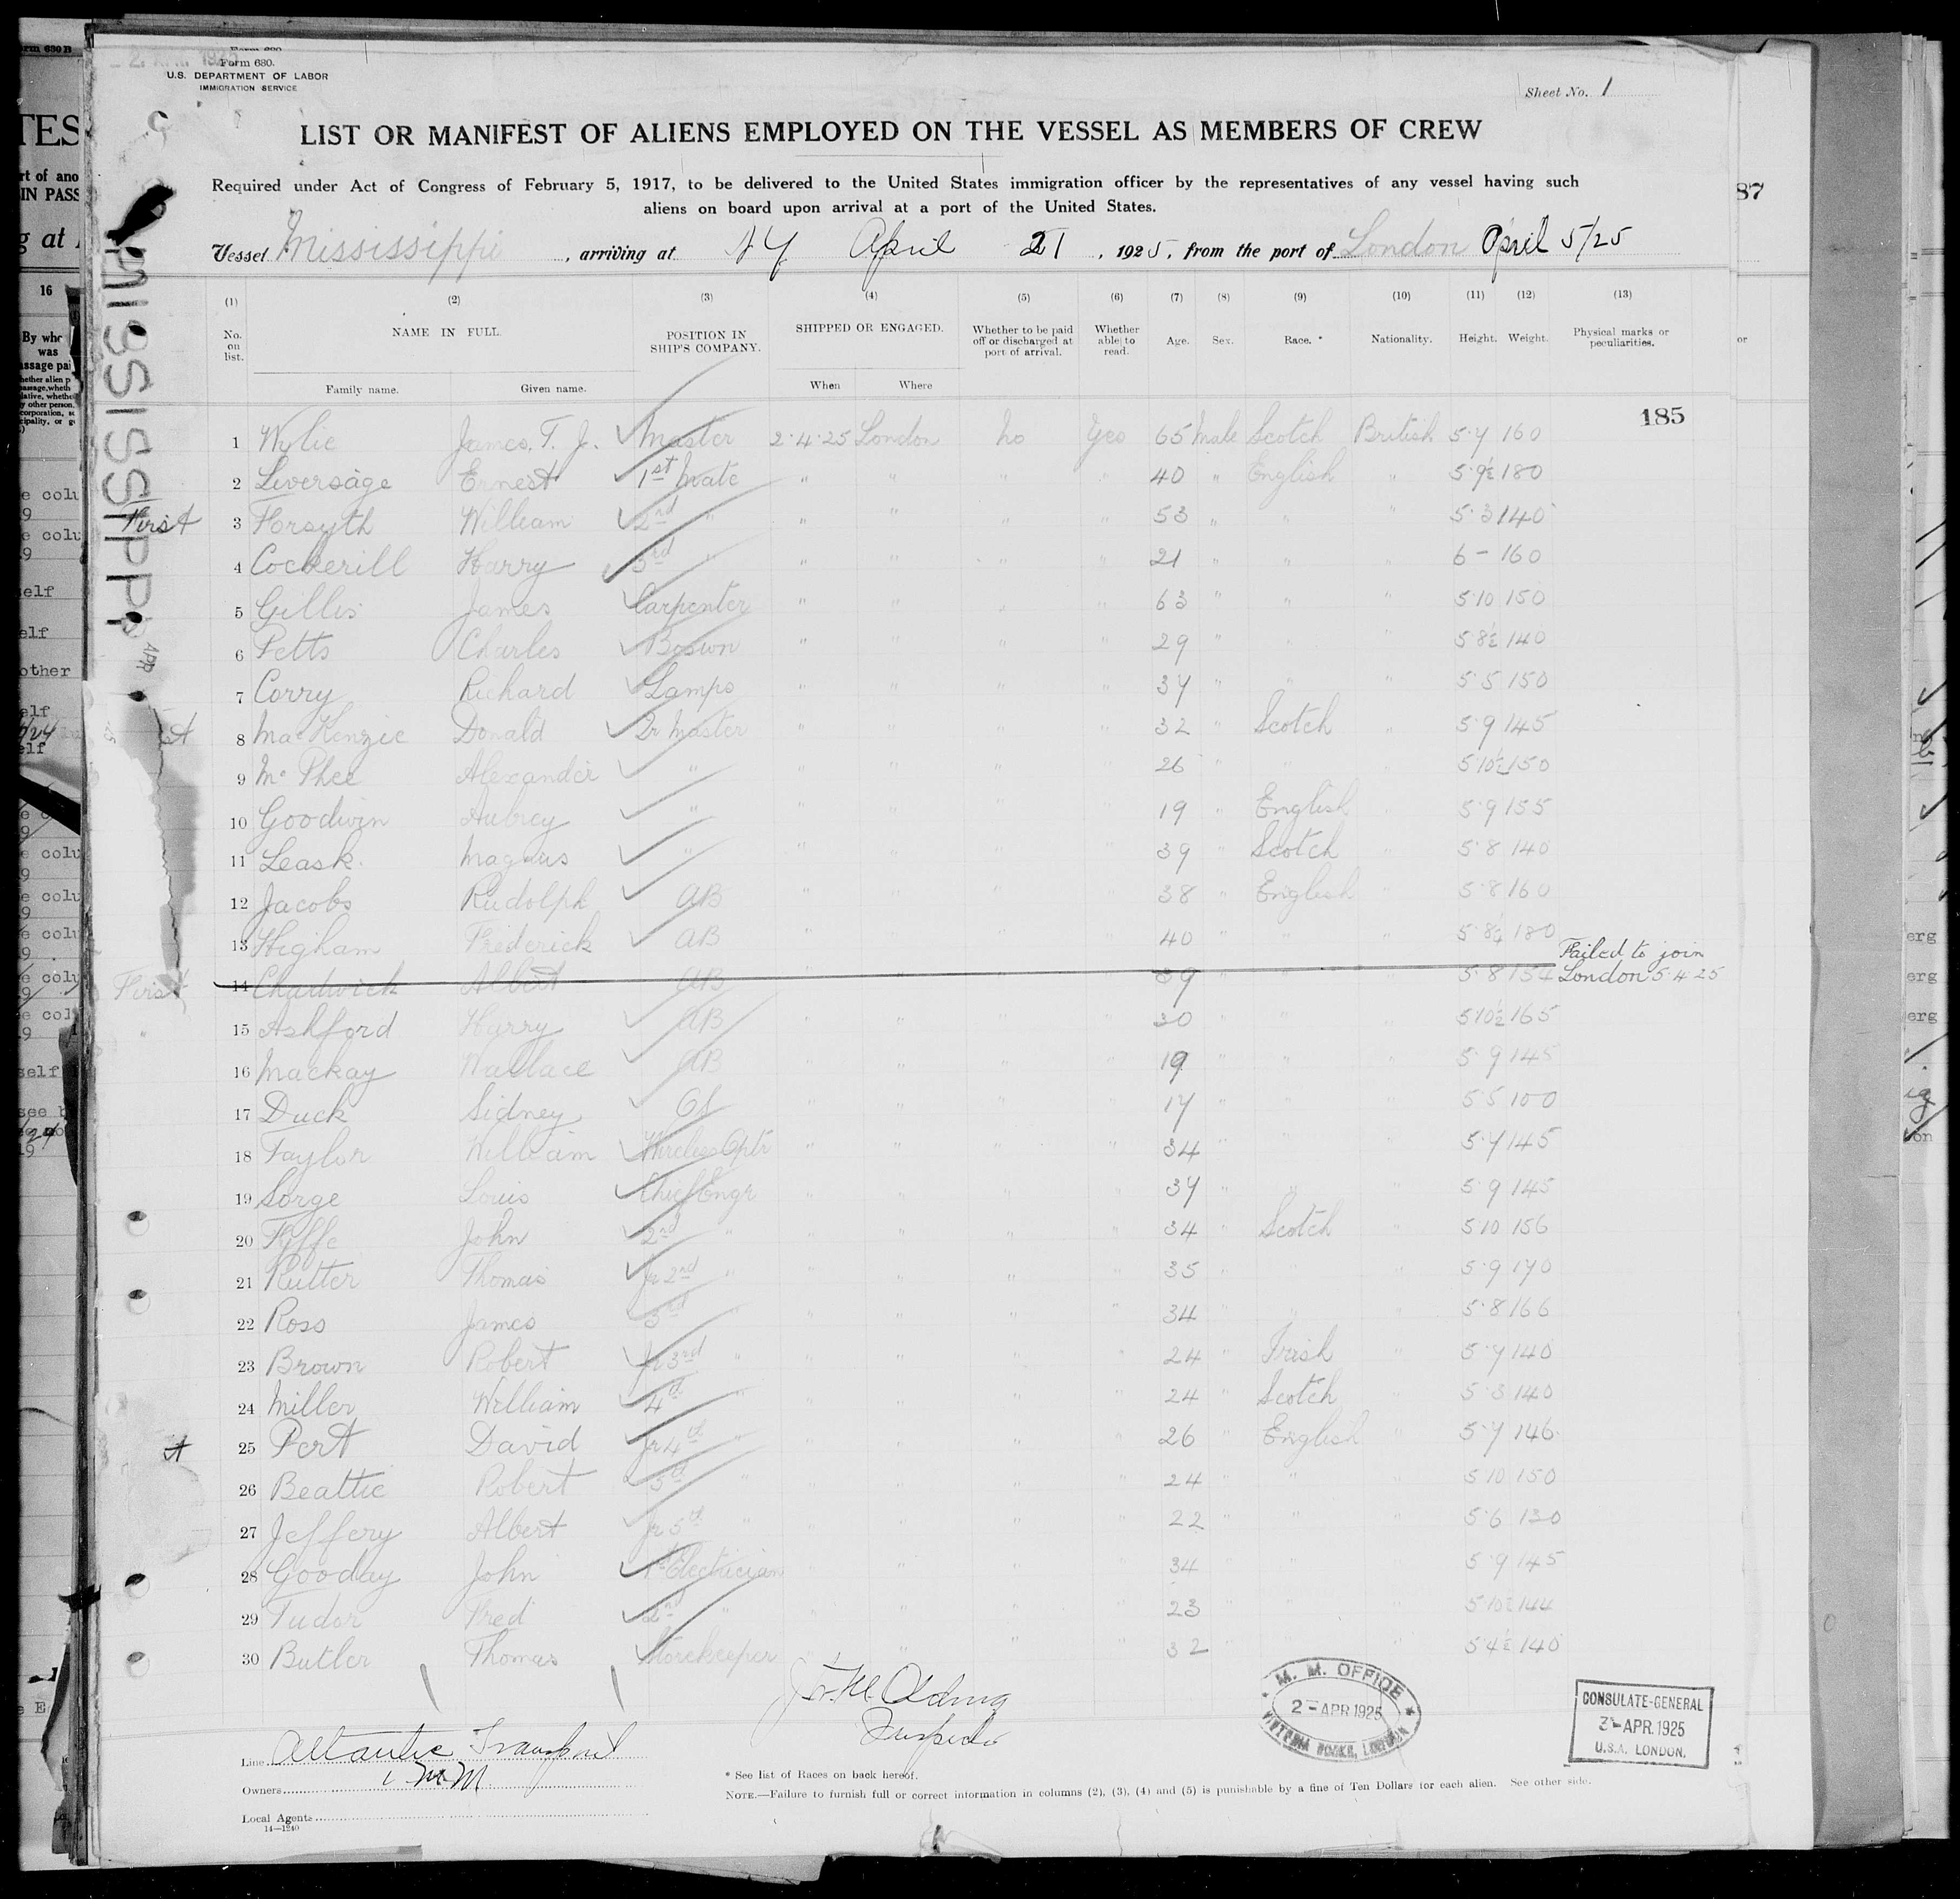 Form 680.
U.S. DEPARTMENT OF LABOR
IMMIGRATION SERVICE
Sheet No. 1
LIST OR MANIFEST OF ALIENS EMPLOYED ON THE VESSEL AS MEMBERS OF CREW
Required under Act of Congress of February 5, 1917, to be delivered to the United States immigration officer by the representatives of any vessel having such
aliens on board upon arrival at a port of the United States.
87
Vessel Mississippi, arriving at NY April 21, 1925, from the port of London April 5/25
MISSISSIPPI
(1) (2) (3) (4) (5) (6) (7) (8) (9) (10) (11) (12) (13)
No. on list. NAME IN FULL. POSITION IN SHIP'S COMPANY. SHIPPED OR ENGAGED. Whether to be paid off or discharged at port of arrival. Whether able to read. Age. Sex. Race. * Nationality. Height. Weight. Physical marks or peculiarities.
Family name. Given name. When Where
185
1 Wylie James. T. J. Master 2.4.25 London no Yes 65 Male Scotch British 5.7 160
2 Liversage Ernest 1st Mate " " " " 40 " English " 5.9½ 180
First 3 Forsyth William 2nd " " " " " 53 " " " 5.3 140
4 Cockerill Harry 3rd " " " " " 21 " " " 6 – 160
5 Gillis James Carpenter " " " " 63 " " " 5.10 150
6 Petts Charles Bosun " " " " 29 " " " 5.8½ 140
7 Corry Richard Lamps " " " " 37 " " " 5.5 150
8 MacKenzie Donald Qr Master " " " " 32 " Scotch " 5.9 145
9 Mc Phee Alexander " " " " " 26 " " " 5.10½ 150
10 Goodwin Aubrey " " " " " 19 " English " 5.9 155
11 Leask. Magnus " " " " " 39 " Scotch " 5.8 140
12 Jacobs Rudolph AB " " " " 38 " English " 5.8 160
13 Higham Frederick AB " " " " 40 " " " 5.8¼ 180
First 14 Chadwick Albert AB " " " " 39 " " " 5.8 154 Failed to join London 5.4.25
15 Ashford Harry AB " " " " 30 " " " 5.10½ 165
16 Mackay Wallace AB " " " " 19 " " " 5.9 145
17 Duck Sidney OS " " " " 17 " " " 5.5 100
18 Taylor William Wireless Optr " " " " 34 " " " 5.7 145
19 Sorge Louis Chief Engr " " " " 37 " " " 5.9 145
20 Fyffe John 2nd " " " " " 34 " Scotch " 5.10 156
21 Rutter Thomas Jr 2nd " " " " " 35 " " " 5.9 170
22 Ross James 3rd " " " " " 34 " " " 5.8 166
23 Brown Robert Jr 3rd " " " " " 24 " Irish " 5.7 140
24 Miller William 4th " " " " " 24 " Scotch " 5.3 140
25 Pert David Jr 4th " " " " " 26 " English " 5.7 146
26 Beattie Robert 5th " " " " " 24 " " " 5.10 150
27 Jeffery Albert Jr 5th " " " " " 22 " " " 5.6 130
28 Gooday John 1st Electrician " " " " 34 " " " 5.9 145
29 Tudor Fred 2nd " " " " " 23 " " " 5.10½ 144
30 Butler Thomas Storekeeper " " " " 32 " " " 5.4½ 140
M. M. OFFICE
2 – APR 1925
VICTORIA DOCKS, LONDON
CONSULATE-GENERAL
3 – APR. 1925
U.S.A. LONDON.
Line Atlantic Transport
Owners
Local Agents
14—1240
* See list of Races on back hereof.
NOTE.—Failure to furnish full or correct information in columns (2), (3), (4) and (5) is punishable by a fine of Ten Dollars for each alien. See other side.